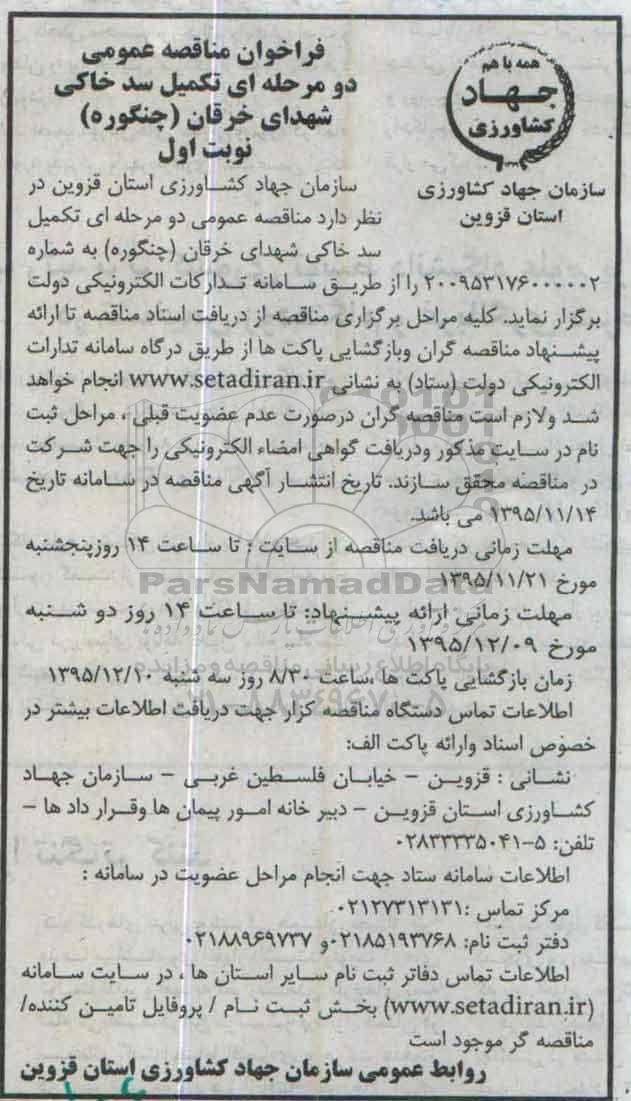 فراخوان مناقصه عمومی
دو مرحله ای تکمیل سد خاکی
شهدای خرقان (چنگوره)
نوبت اول
همه با هم
جهاد
کشاورزی
سازمان جهاد کشاورزی
استان قزوین
سازمان جهاد کشاورزی استان قزوین در
نظر دارد مناقصه عمومی دو مرحله ای تکمیل
سد خاکی شهدای خرقان (چنگوره) به شماره
۲۰۰۹۵۳۱۷۶۰۰۰۰۰۲ را از طریق سامانه تدارکات الکترونیکی دولت
برگزار نماید. کلیه مراحل برگزاری مناقصه از دریافت اسناد مناقصه تا ارائه
پیشنهاد مناقصه گران وبازگشایی پاکت ها از طریق درگاه سامانه تدارات
الکترونیکی دولت (ستاد) به نشانی www.setadiran.ir انجام خواهد
شد ولازم است مناقصه گران درصورت عدم عضویت قبلی ، مراحل ثبت
نام در سایت مذکور ودریافت گواهی امضاء الکترونیکی را جهت شرکت
در مناقصه محقق سازند. تاریخ انتشار آگهی مناقصه در سامانه تاریخ
۱۳۹۵/۱۱/۱۴ می باشد.
مهلت زمانی دریافت مناقصه از سایت : تا ساعت ۱۴ روزپنجشنبه
مورخ ۱۳۹۵/۱۱/۲۱
ParsNamadData
مهلت زمانی ارائه پیشنهاد: تا ساعت ۱۴ روز دو شنبه
مورخ ۱۳۹۵/۱۲/۰۹
پایگاه اطلاع رسانی مناقصه و مزایده
زمان بازگشایی پاکت ها ،ساعت ۸/۳۰ روز سه شنبه ۱۳۹۵/۱۲/۱۰
اطلاعات تماس دستگاه مناقصه گزار جهت دریافت اطلاعات بیشتر در
خصوص اسناد وارائه پاکت الف:
نشانی : قزوین – خیابان فلسطین غربی – سازمان جهاد
کشاورزی استان قزوین – دبیر خانه امور پیمان ها وقرار داد ها –
تلفن: ۵-۰۲۸۳۳۳۳۵۰۴۱
اطلاعات سامانه ستاد جهت انجام مراحل عضویت در سامانه :
مرکز تماس :۰۲۱۲۷۳۱۳۱۳۱
دفتر ثبت نام: ۰۲۱۸۵۱۹۳۷۶۸و ۰۲۱۸۸۹۶۹۷۳۷
اطلاعات تماس دفاتر ثبت نام سایر استان ها ، در سایت سامانه
(www.setadiran.ir) بخش ثبت نام / پروفایل تامین کننده/
مناقصه گر موجود است
روابط عمومی سازمان جهاد کشاورزی استان قزوین